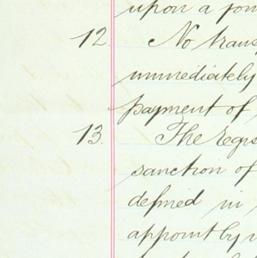 upon a
12 No
immediately
payment of
13. The
sanction of
defined in
appoint by